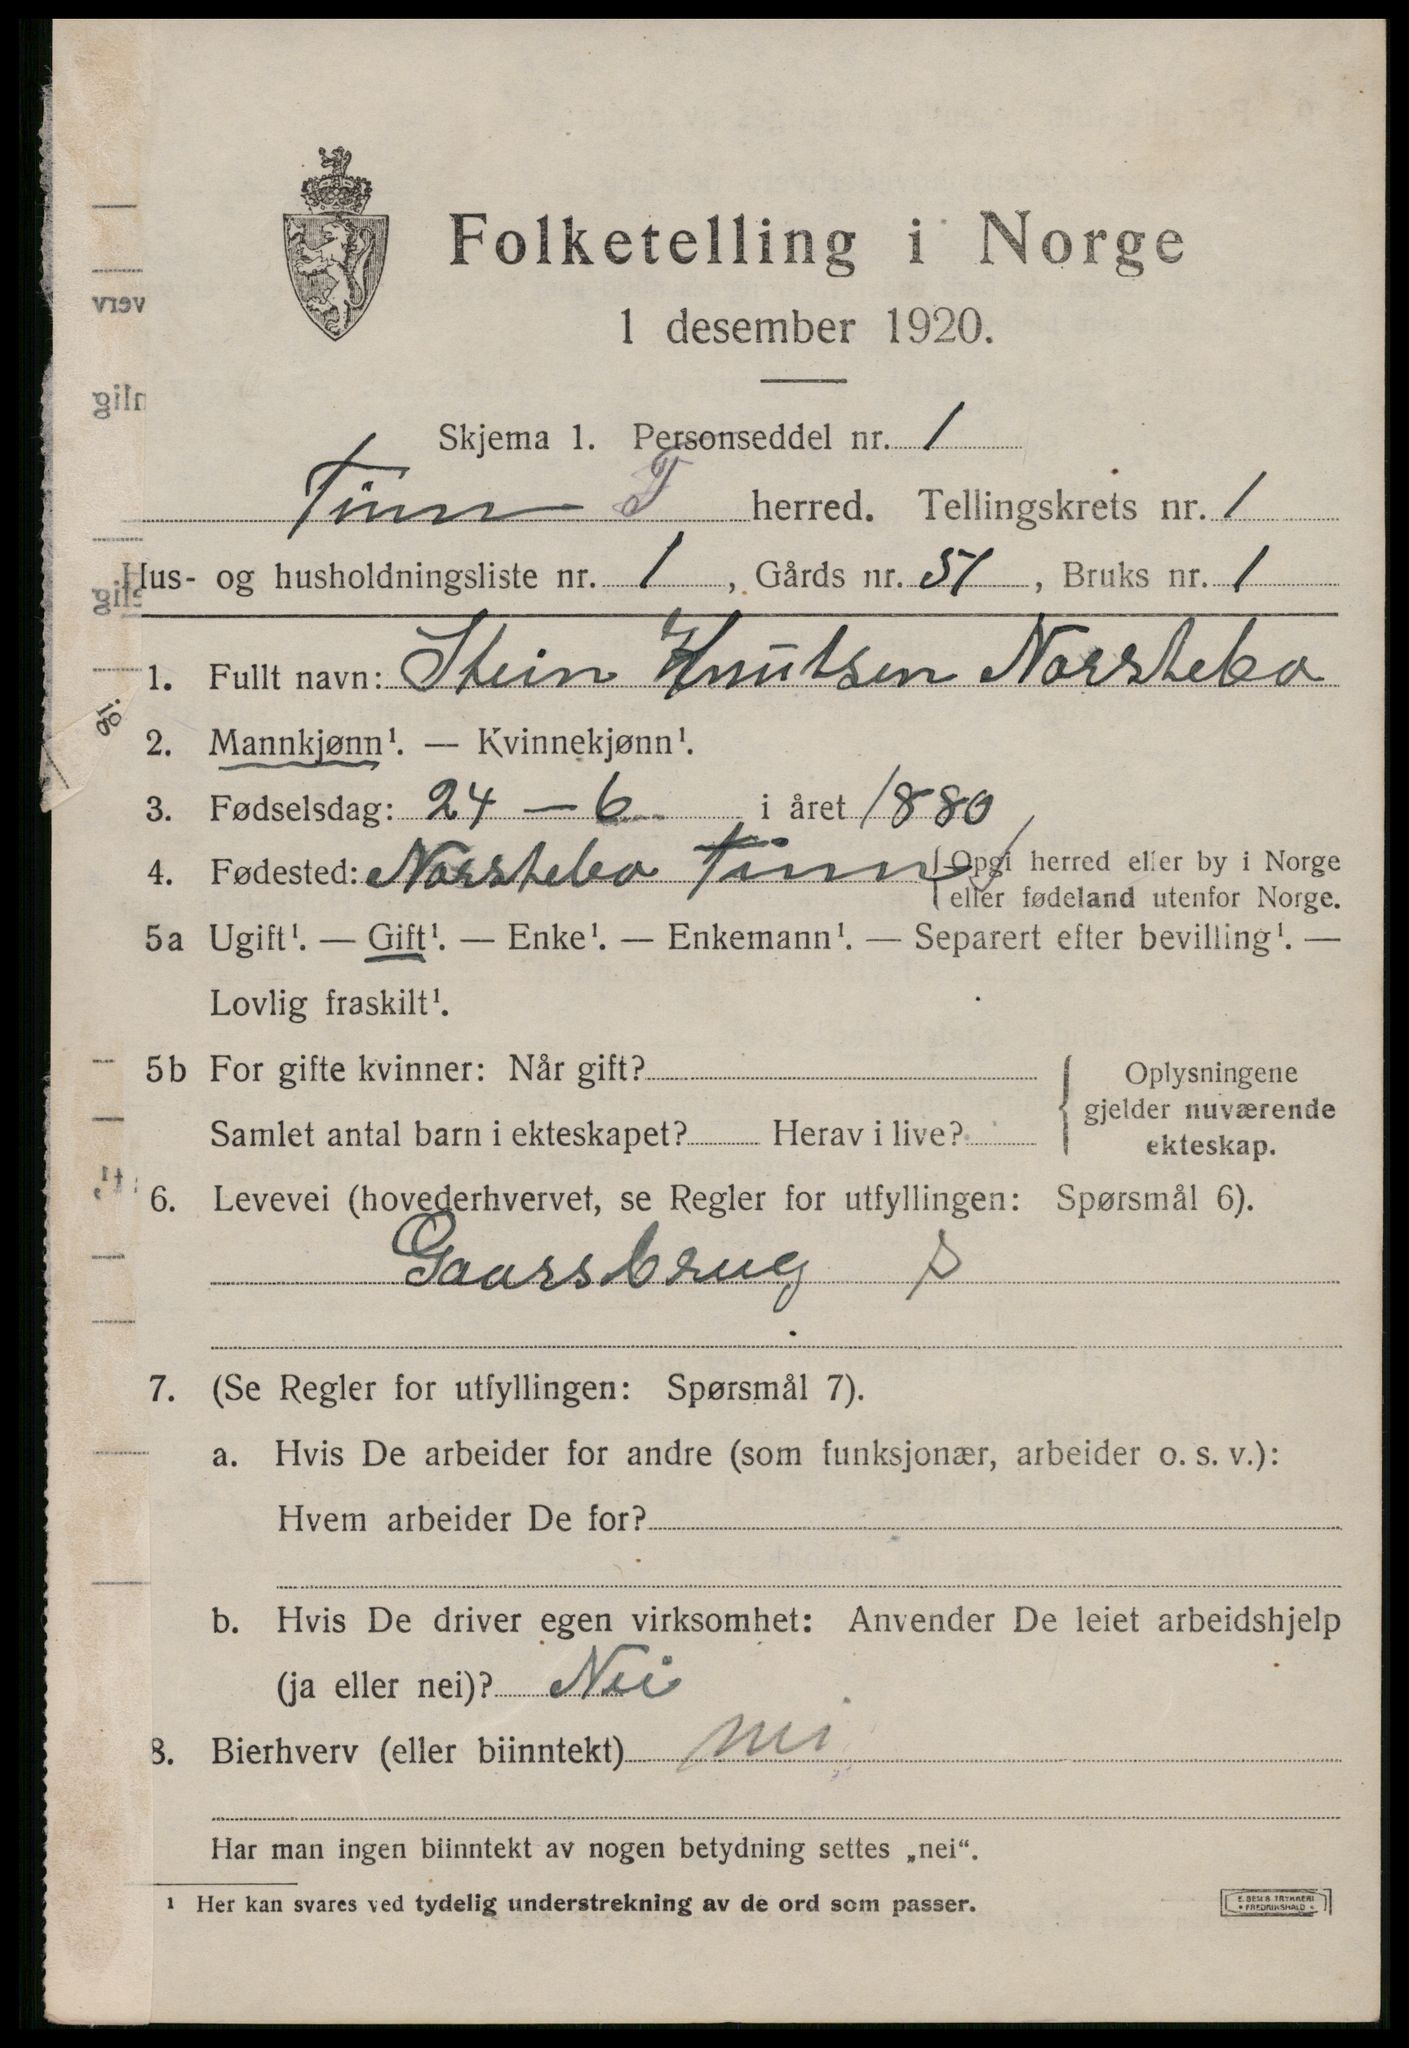 Folketelling i Norge
1 desember 1920.
Skjema 1. Personseddel nr. 1
Tinn T herred. Tellingskrets nr. 1
Hus- og husholdningsliste nr. 1, Gårds nr. 51, Bruks nr. 1
1. Fullt navn: Stein Knutsen Norstebø
2. Mannkjønn¹. — Kvinnekjønn¹.
3. Fødselsdag: 24 – 6 i året 1880
4. Fødested: Norstebø Tinn { Opgi herred eller by i Norge
eller fødeland utenfor Norge.
5a Ugift¹. — Gift¹. — Enke¹. — Enkemann¹. — Separert efter bevilling¹. —
Lovlig fraskilt¹.
5b For gifte kvinner: Når gift?
Samlet antal barn i ekteskapet? Herav i live?
Oplysningene
gjelder nuværende
ekteskap.
6. Levevei (hovederhvervet, se Regler for utfyllingen: Spørsmål 6).
Gaarsbrug s
7. (Se Regler for utfyllingen: Spørsmål 7).
a. Hvis De arbeider for andre (som funksjonær, arbeider o. s. v.):
Hvem arbeider De for?
b. Hvis De driver egen virksomhet: Anvender De leiet arbeidshjelp
(ja eller nei)? Nei
8. Bierhverv (eller biinntekt) nei
Har man ingen biinntekt av nogen betydning settes „nei“.
¹ Her kan svares ved tydelig understrekning av de ord som passer.
E. SEMS TRYKKERI
• FREDRIKSHALD •